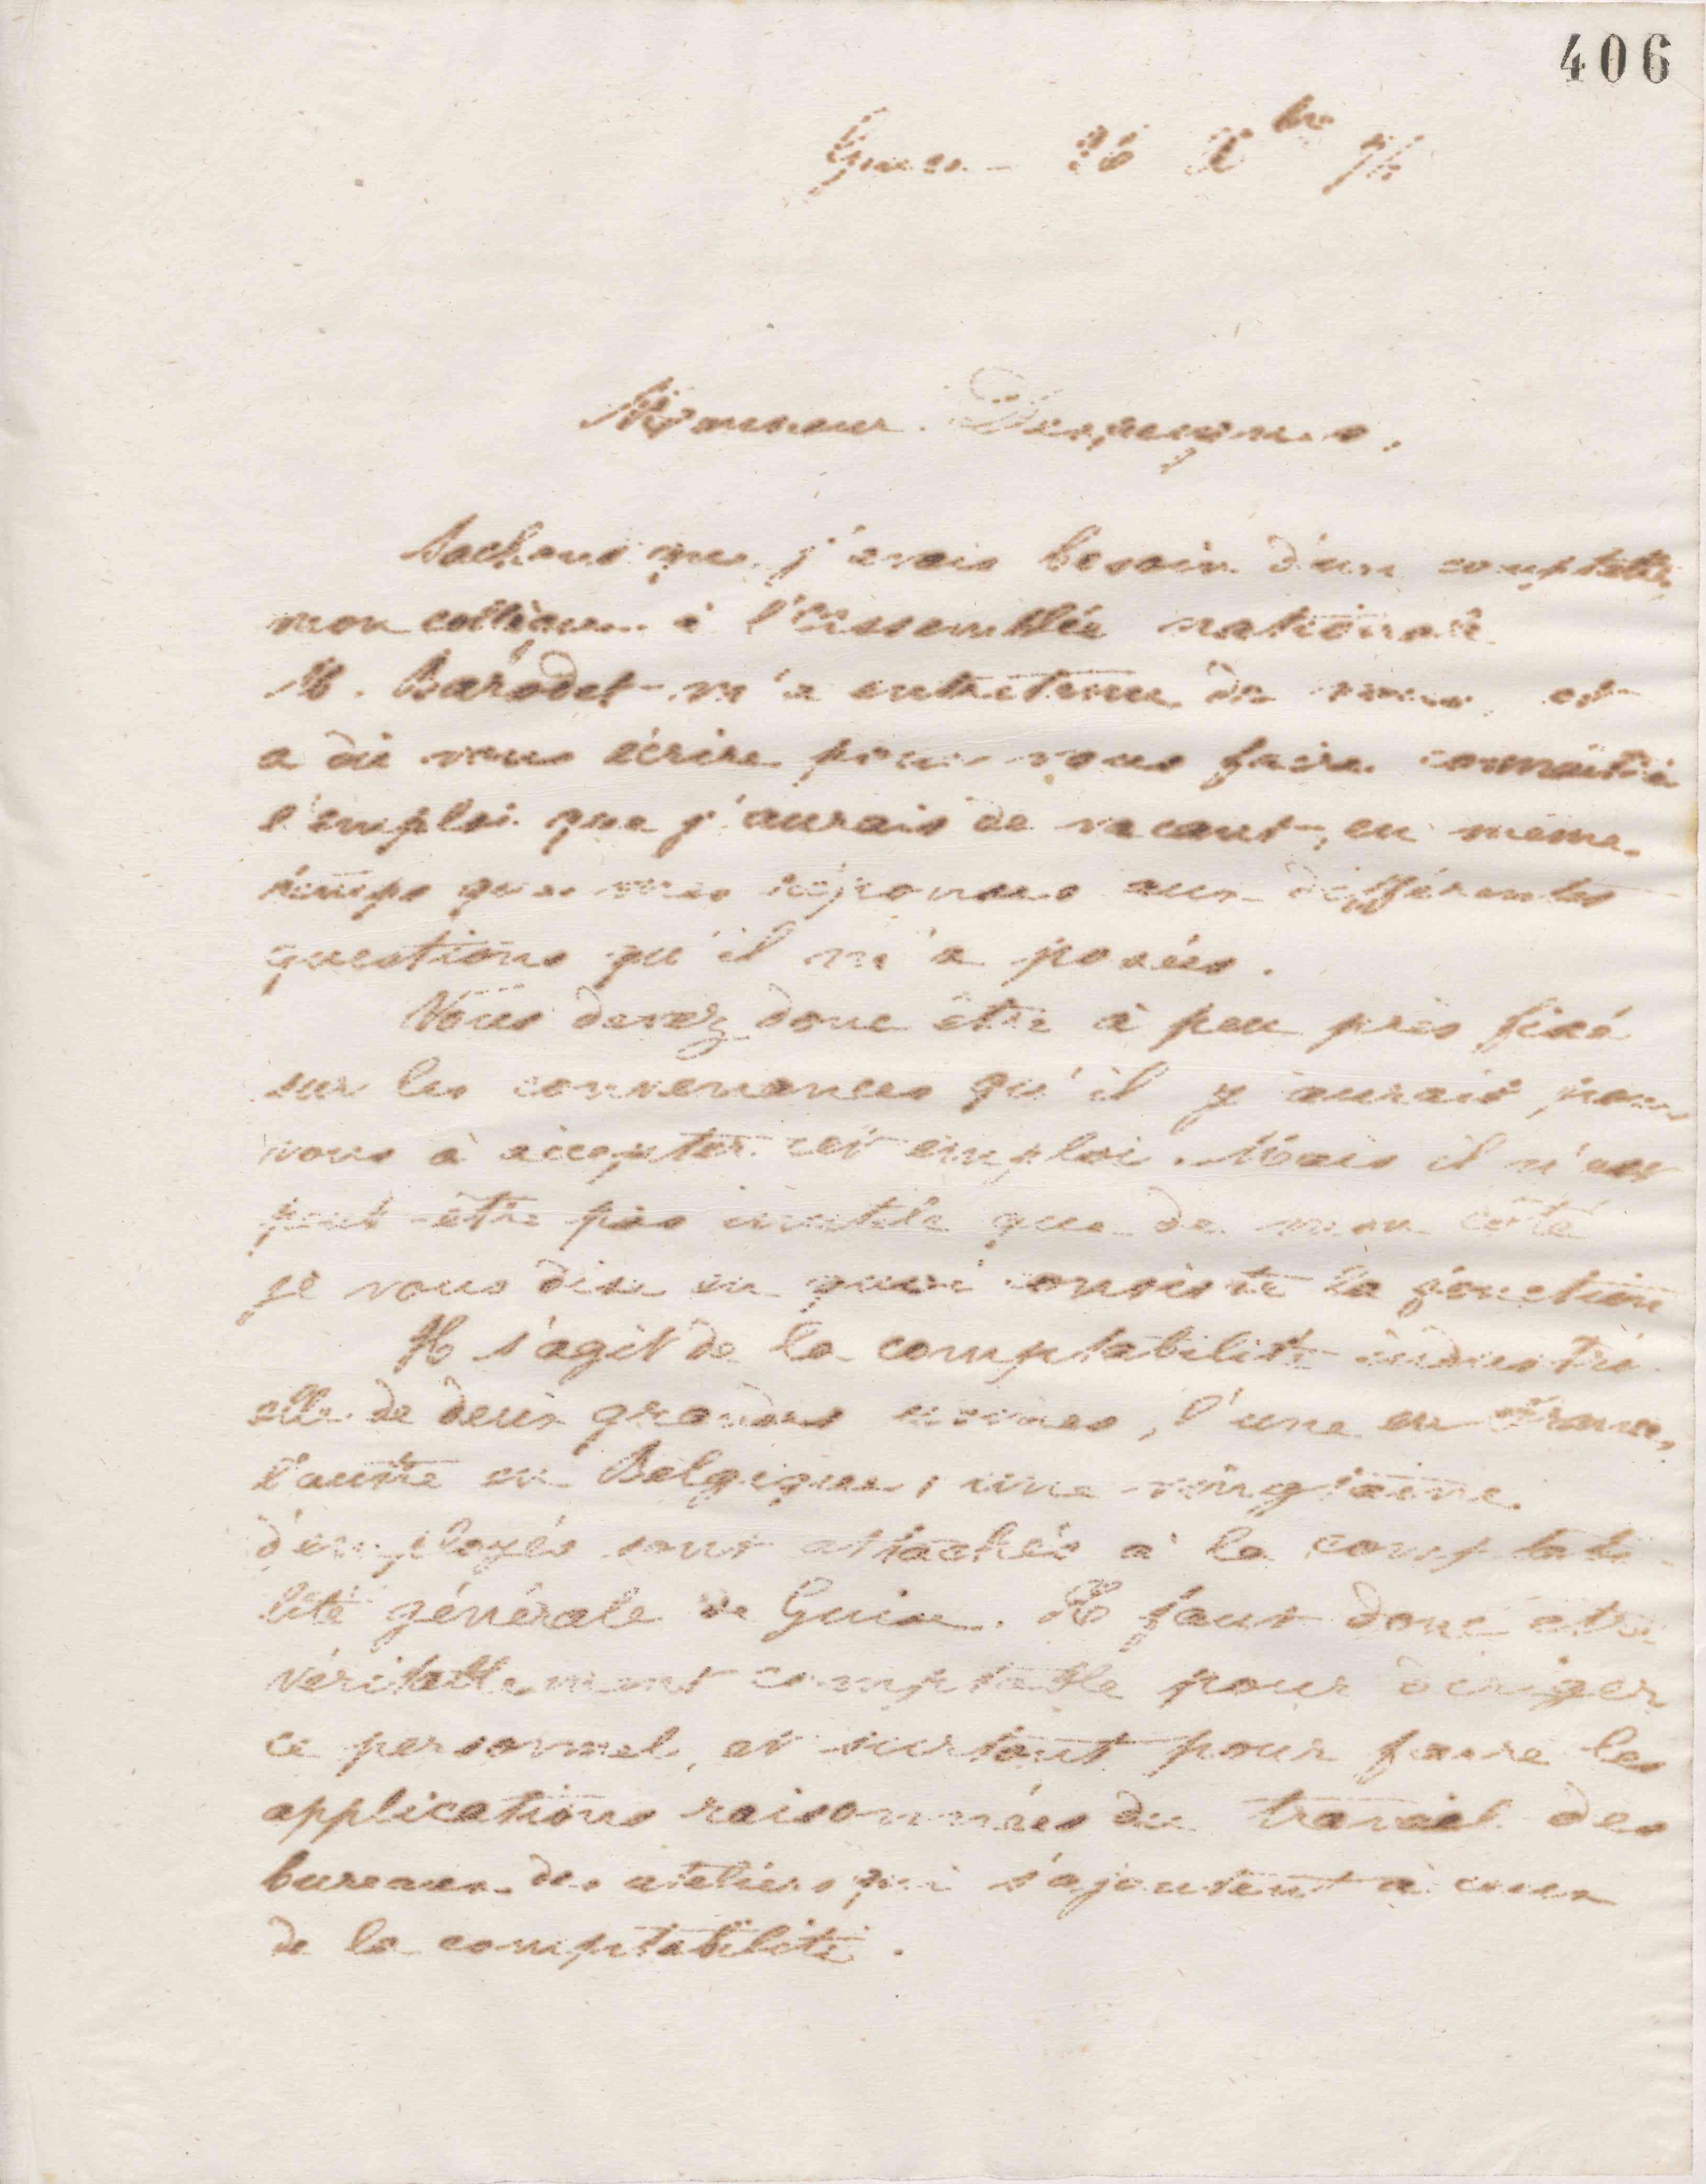 406
Guise 26 Xbre 75
Monsieur
Sachant que j'avais besoin d'un comptable,
mon collègue à l'Assemblée nationale
M. Barodet m'a entretenu de vous et
a dû vous écrire pour vous faire connaître
l'emploi que j'aurais de vacant, en même
temps que mes réponses aux différentes
questions qu'il m'a posées.
Vous devez donc être à peu près fixé
sur les convenances qu'il y aurait pour
vous à accepter cet emploi. Mais il n'est
peut-être pas inutile que de mon côté
je vous dise en quoi consiste la fonction
Il s'agit de la comptabilité industri-
elle de deux grandes usines, l'une en France,
l'autre en Belgique; une vingtaine
d'employés sont attachés à la comptabi-
lité générale de Guise. Il faut donc être
véritablement comptable pour diriger
ce personnel, et surtout pour faire les
applications raisonnées du travail des
bureaux des ateliers qui s'ajoutent à ceux
de la comptabilité.